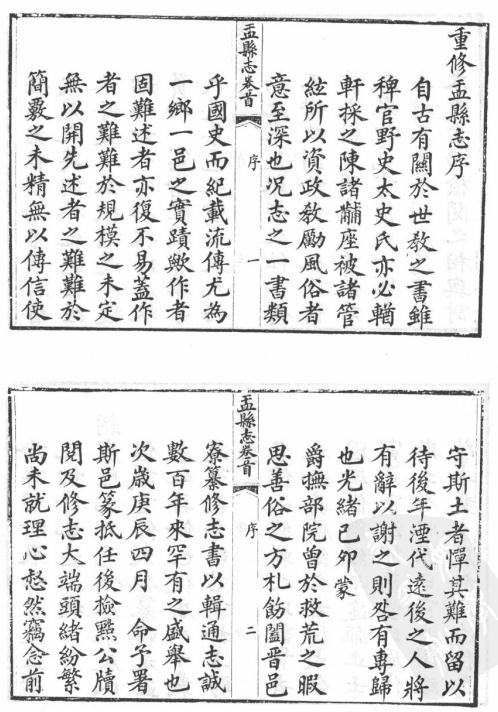 重修盂縣志序
自古有關於世教之書雖
稗官野史太史氏亦必輶
軒採之陳諸黼座被諸管
絃所以資政教勵風俗者
意至深也况志之一書類
盂縣志卷首
序
一
乎國史而紀載流傳尤為
一鄉一邑之實蹟歟作者
固難述者亦復不易蓋作
者之難難於規模之未定
無以開先述者之難難於
簡覈之未精無以傳信使
守斯土者憚其難而留以
待後年湮代遠後之人將
有辭以謝之則咎有專歸
也光緒己卯蒙
爵撫部院曾於救荒之暇
思善俗之方札飭闔晋邑
盂縣志卷首
序
二
寮纂修志書以輯通志誠
數百年來罕有之盛舉也
次歲庚辰四月 命予署
斯邑篆抵任後檢點公牘
閱及修志大端頭緒紛繁
尚未就理心愁然竊念前